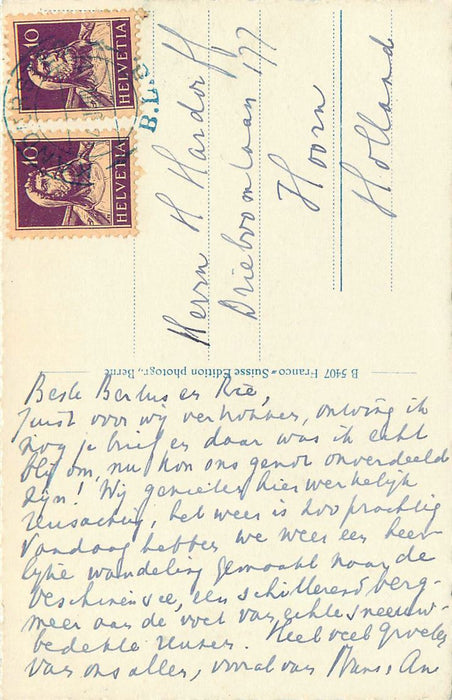 10
HELVETIA
10
HELVETIA
B.L.
Herrn H Hardorff
Drieboomlaan 177
Hoorn
Holland
B 5407 Franco-Suisse Edition photogr., Berne
Beste Bertus en Rie,
Juist voor wij vertrokken, ontving ik
nog je brief en daar was ik echt
blij om, nu kon ons genot onverdeeld
zijn! Wij genieten hier werkelijk
reusachtig, het weer is zoo prachtig
Vandaag hebben we weer een heer-
lijke wandeling gemaakt naar de
Oeschinensee, een schitterend berg-
meer aan de voet van echte sneeuw-
bedekte reuzen. Heel veel groeten
van ons allen, vooral van Hans & An